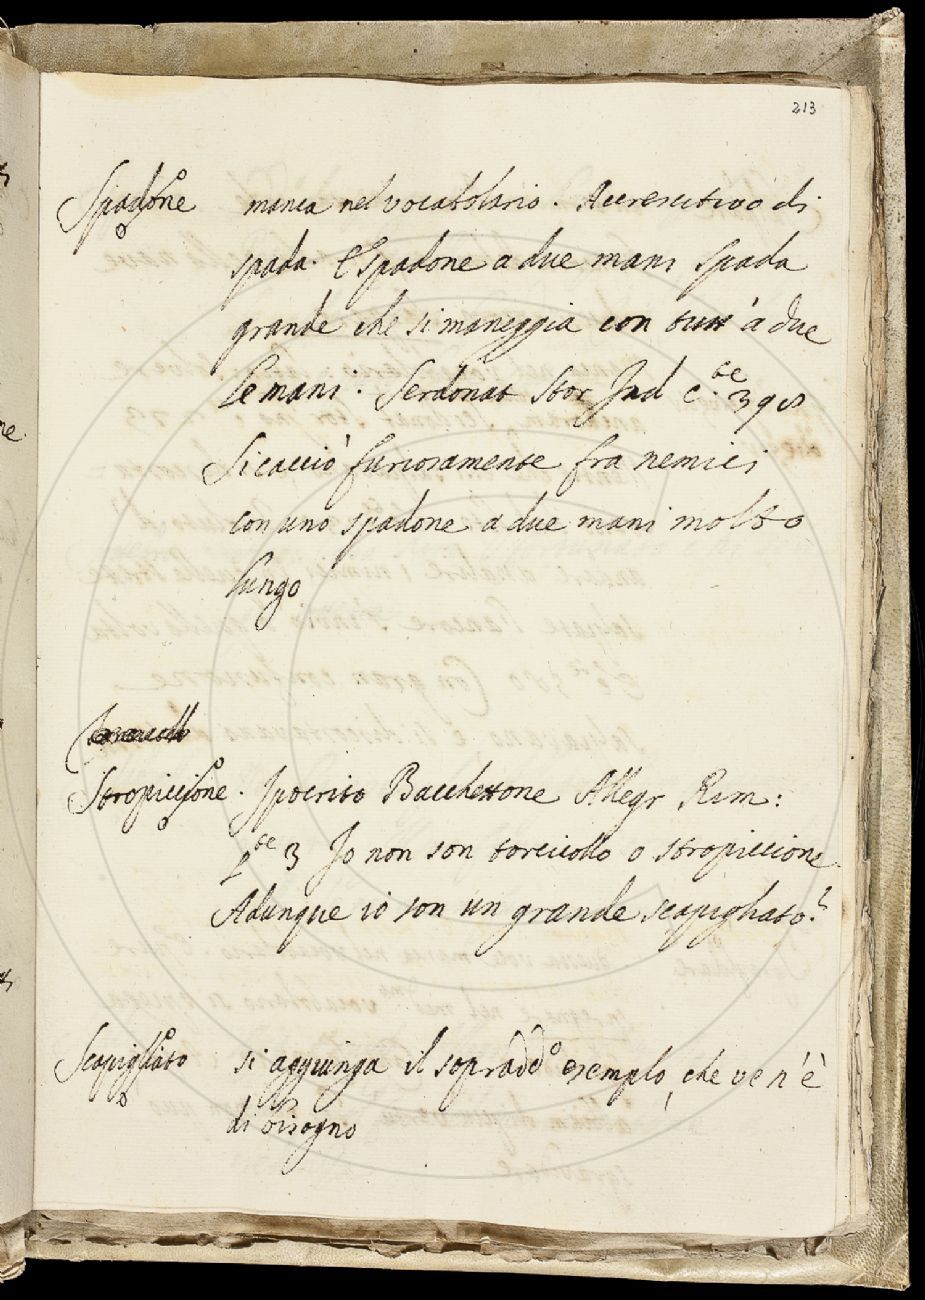 213
Spadone manca nel vocabolario. Accrescitivo di
spada. E Spadone a due mani Spada
grande che si maneggia con tutt' a due
le mani: Serdonat Stor Ind C.te 398
Si cacciò furiosamente fra nemici
con uno spadone a due mani molto
lungo
Stropiccione. Ipocrito Bacchettone Allegr Rim:
te 3 Io non son torcicollo o stropiccione
Adunque io son un grande scapigliato?
Scapigliato si aggiunga il sopradd.o esemplo, che ve n'è
di bisogno